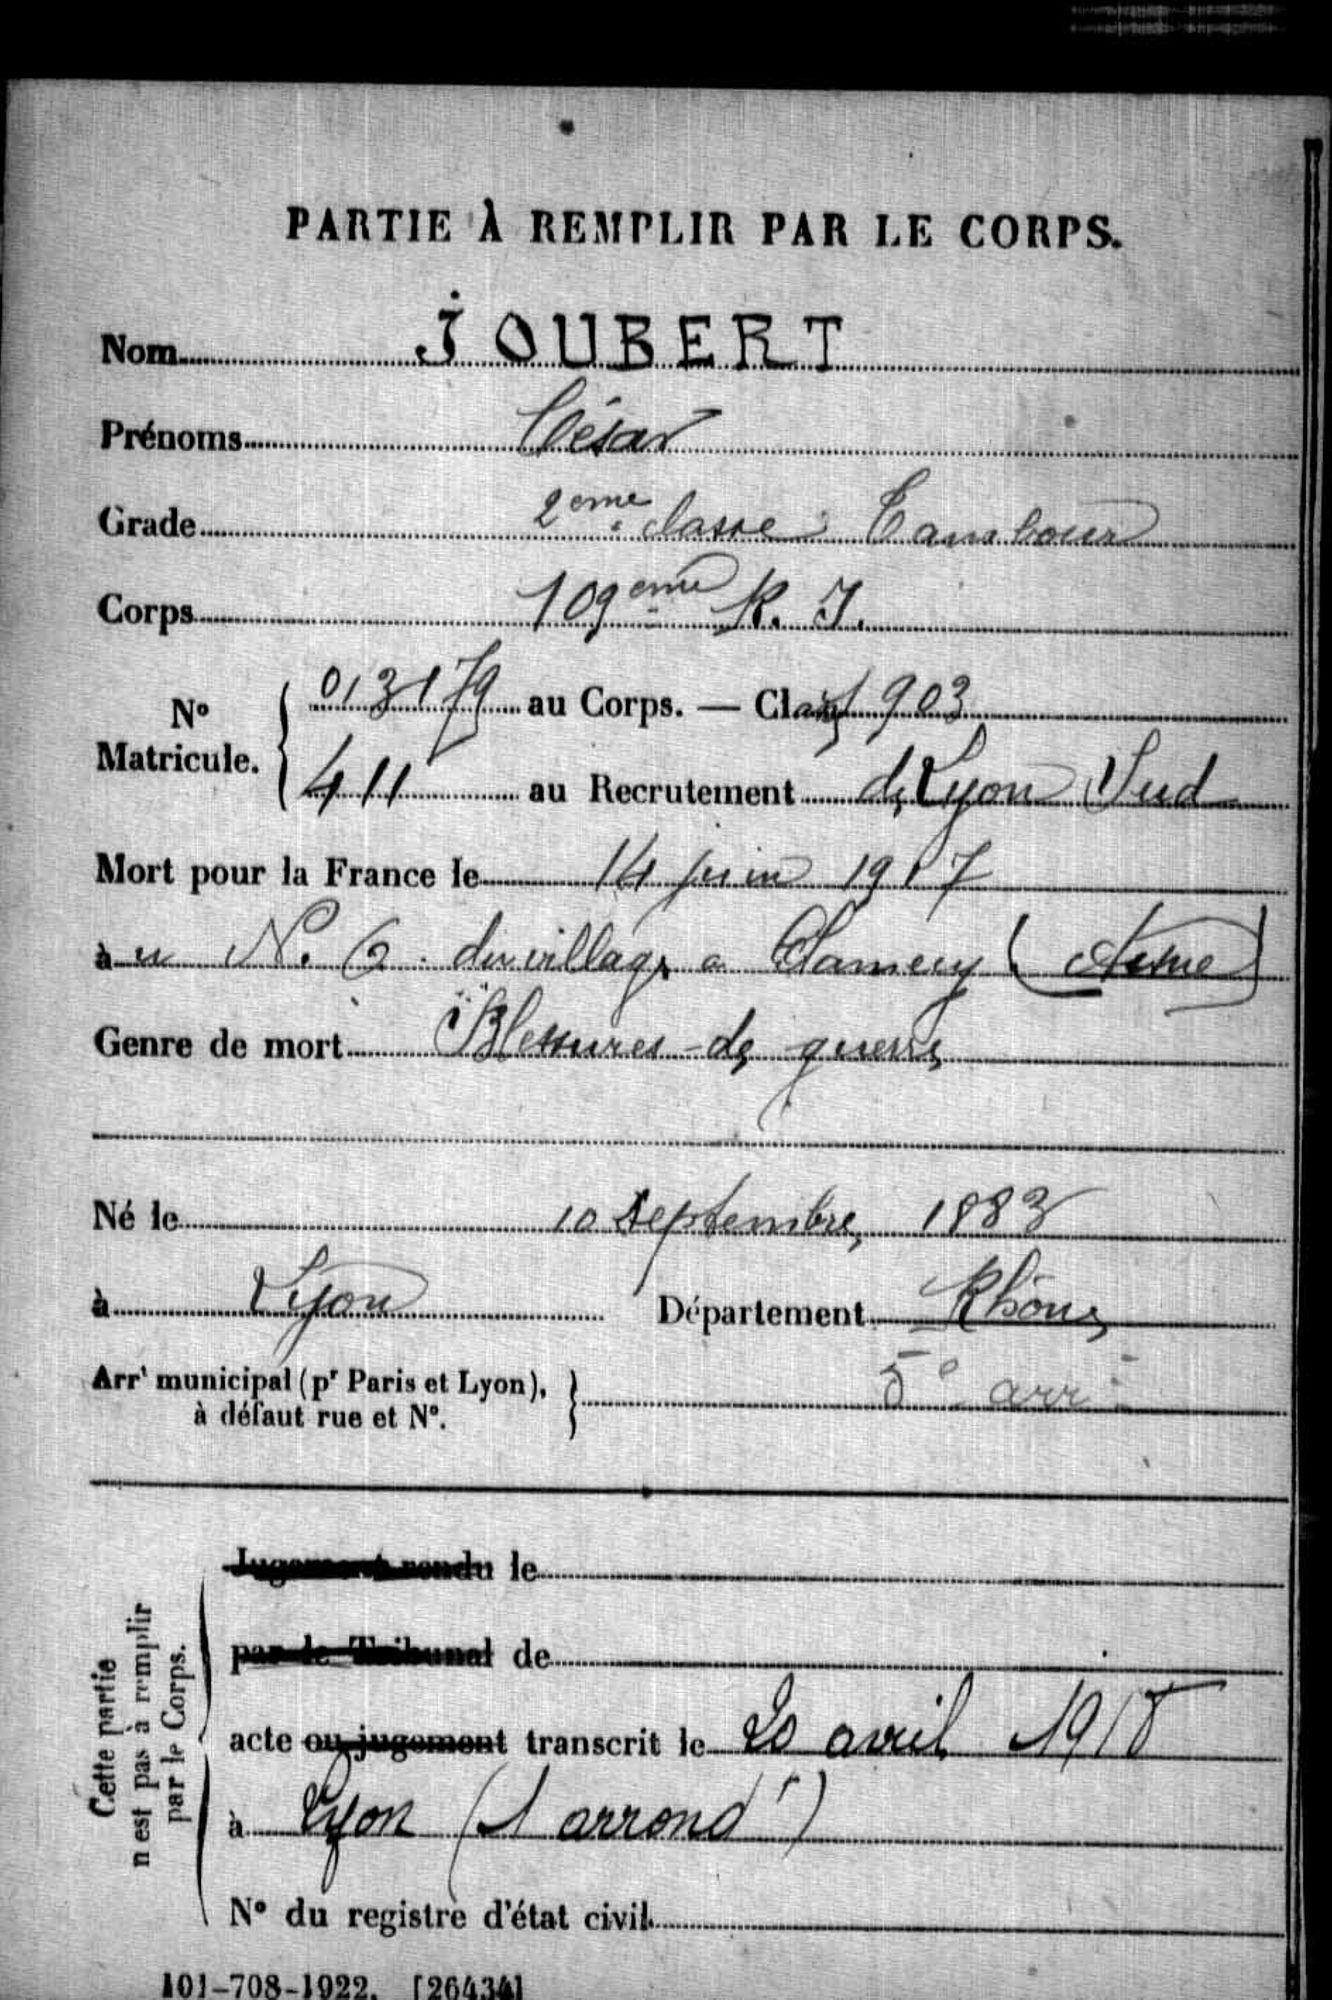 PARTIE À REMPLIR PAR LE CORPS.
Nom JOUBERT
Prénoms César
Grade 2eme classe Tambour
Corps 109eme R. I.
No Matricule. 013179 au Corps. — Classe 1903
411 au Recrutement de Lyon Sud
Mort pour la France le 14 juin 1917
à u N. O. du village a Clamecy (Aisne)
Genre de mort Blessures de guerre
Né le 10 Septembre 1883
à Lyon Département Rhône
Arrt municipal (pr Paris et Lyon), à défaut rue et No. 5o arr
Cette partie n'est pas à remplir par le Corps.
Jugement rendu le
par le Tribunal de
acte ou jugement transcrit le 20 avril 1918
à Lyon (1 arrondt)
No du registre d'état civil
101-708-1922. [26434]